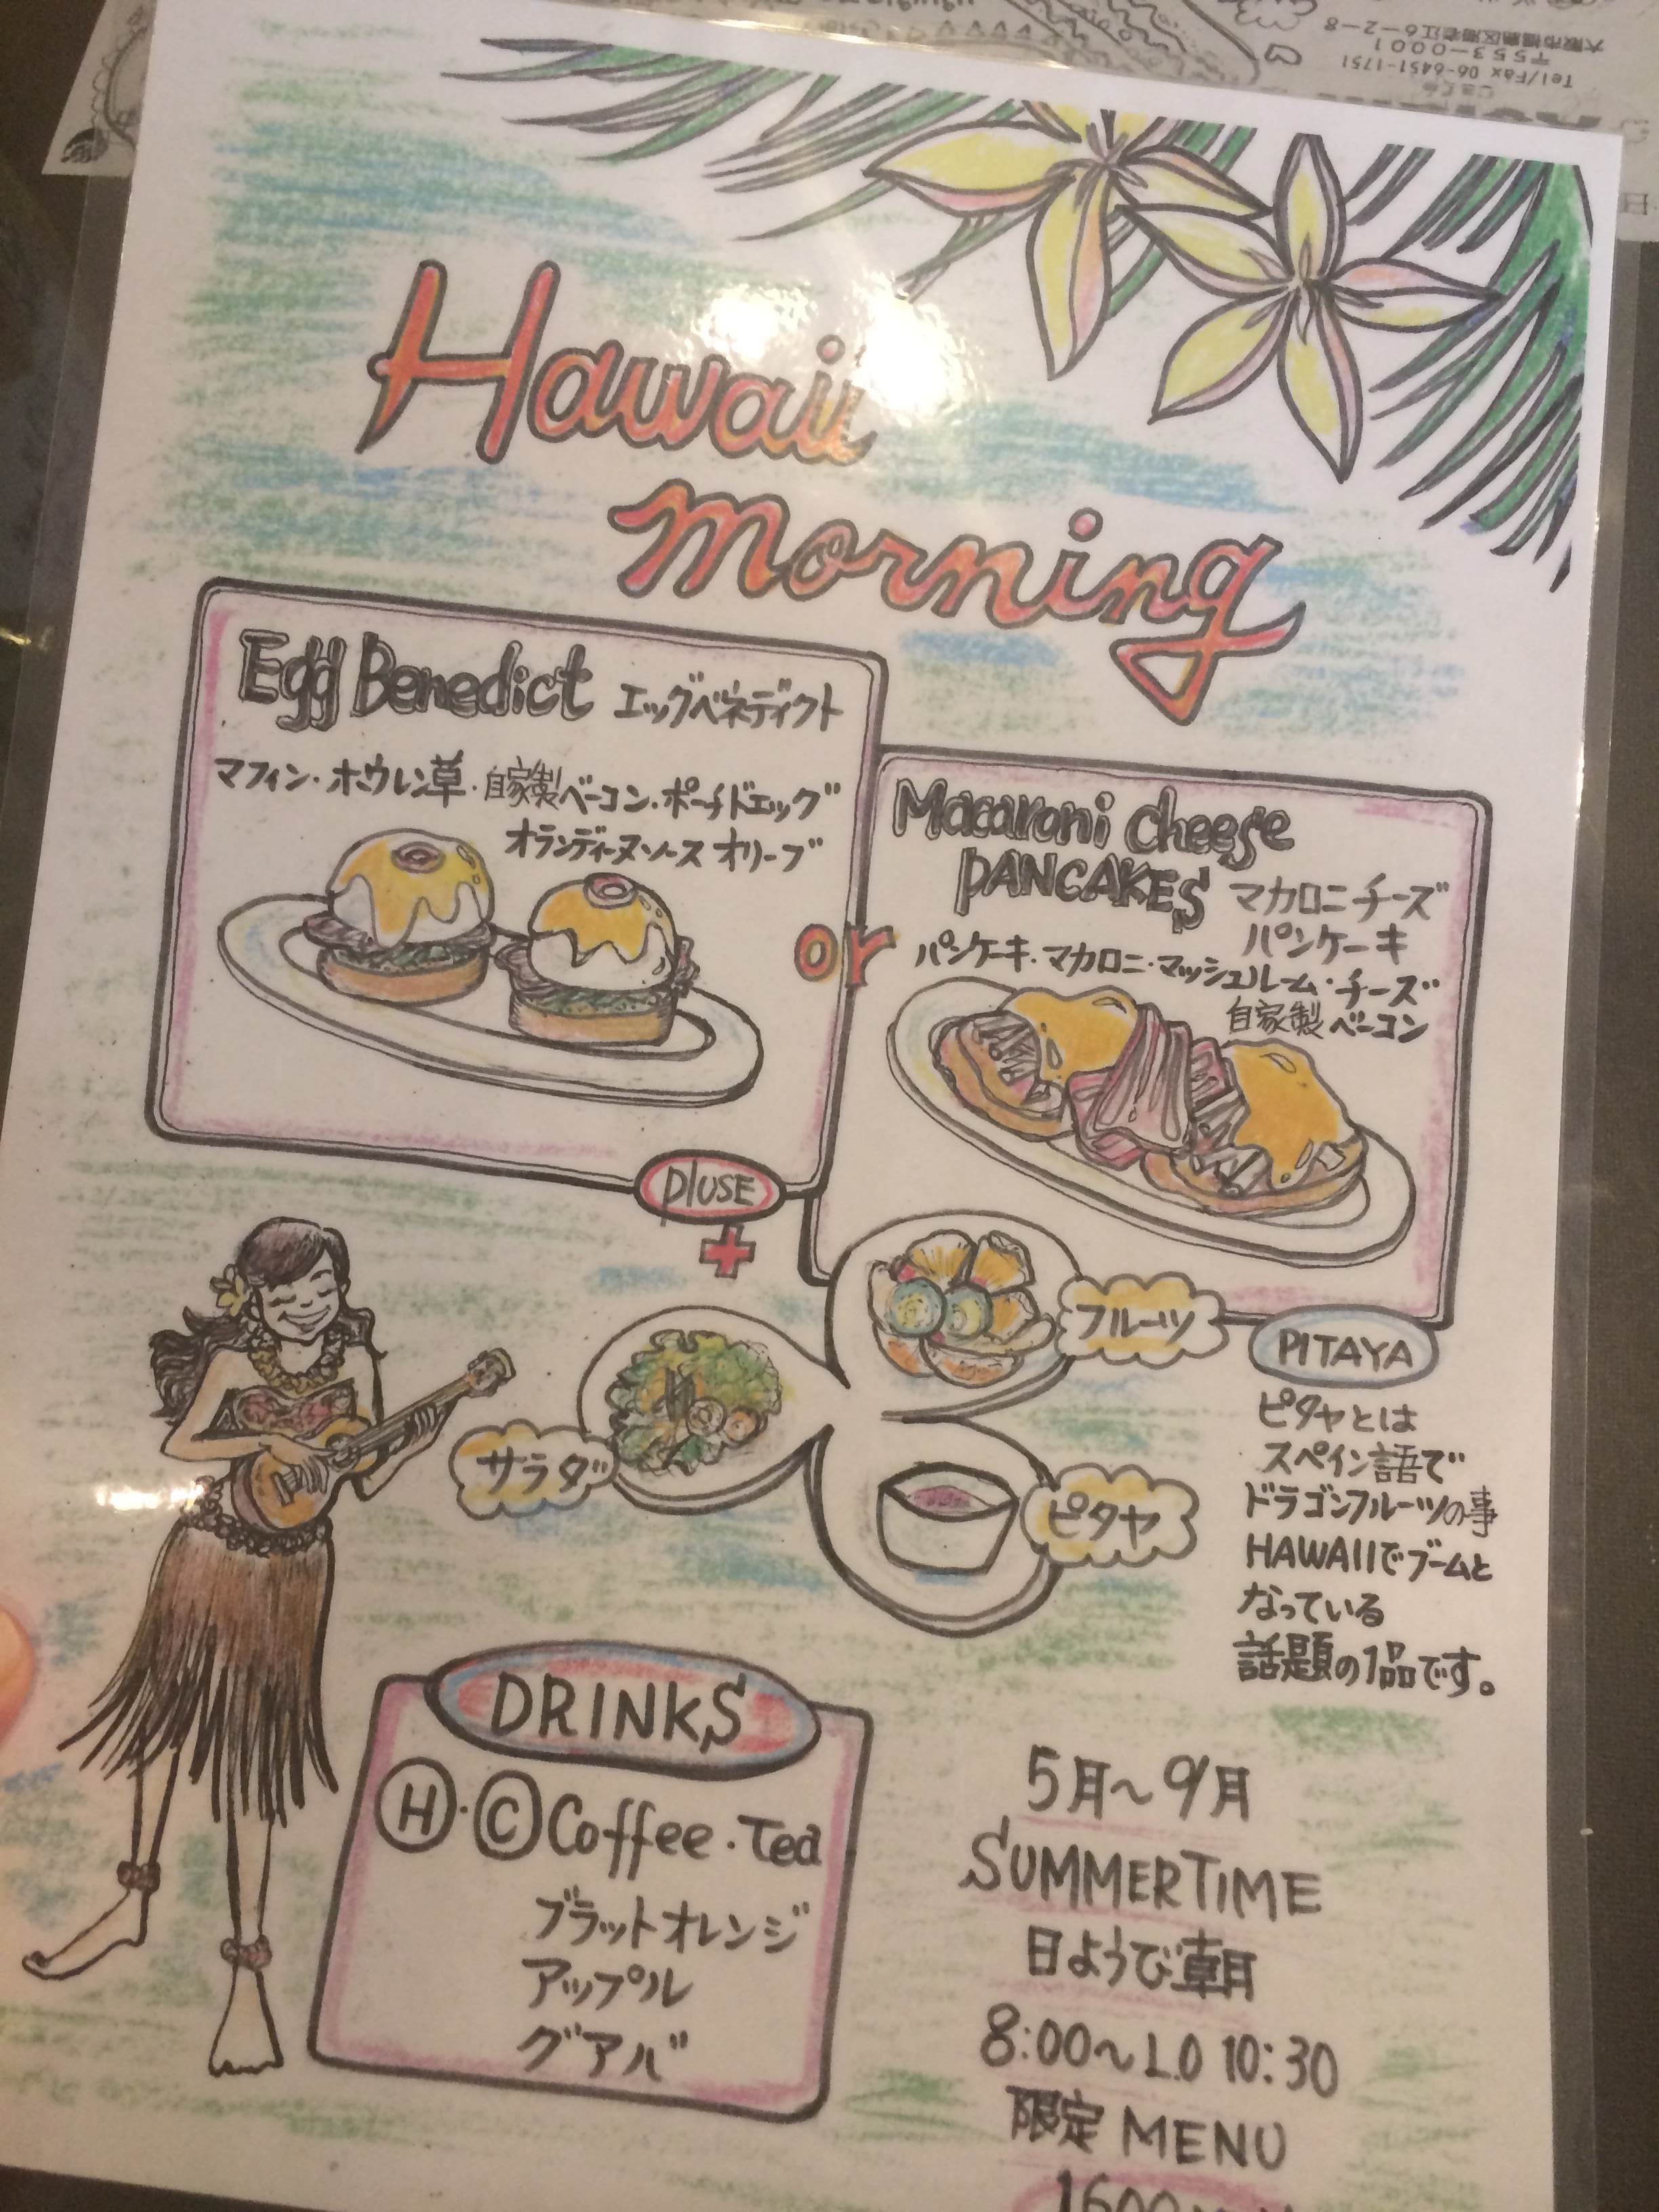 大阪市福島区海老江6-2-8
〒553-0001
Tel/Fax 06-6451-1751
Hawaii
morning
Egg Benedict エッグベネディクト
マフィン・ホウレン草・自家製ベーコン・ポーチドエッグ
オランディーヌソース オリーブ
or
Macaroni cheese
PANCAKES マカロニチーズ
パンケーキ
パンケーキ・マカロニ・マッシュルーム・チーズ
自家製ベーコン
PLUSE
+
フルーツ
サラダ
ピタヤ
PITAYA
ピタヤとは
スペイン語で
ドラゴンフルーツの事
HAWAIIでブームと
なっている
話題の1品です。
DRINKS
Ⓗ・Ⓒ Coffee・Tea
ブラットオレンジ
アップル
グアバ
5月～9月
SUMMERTIME
日ようび朝
8:00～L.O 10:30
限定 MENU
1600